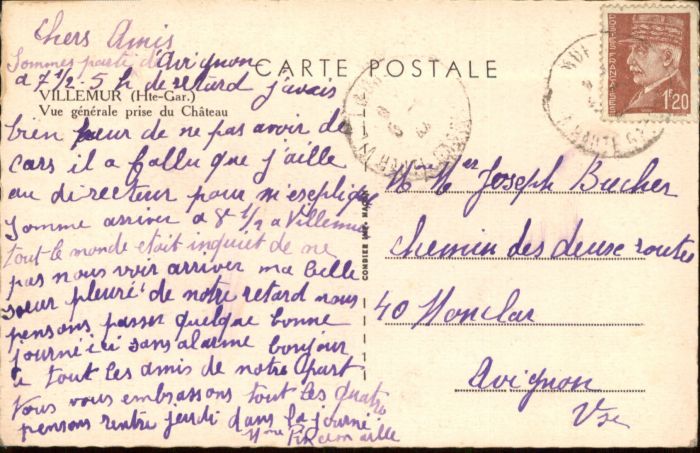 Chers Amis
Sommes parti d'Avignon
a 7 1/2 - 5 h de retard j'avais
CARTE POSTALE
VILLEMUR (Hte-Gar.)
Vue générale prise du Château
bien peur de ne pas avoir de
cars il a fallu que j'aille
au directeur pour m'esplique
somme arriver a 8 1/2 a Villemur
tout le monde etait inquiet de ne
pas nous voir arriver ma belle
sœur pleuré de notre retard nous
pensons passer quelque bonne
journé ici sans alarme bonjour
a tout les amis de notre part
Vous vous embrassons tout les quatre
pensons rentre jeudi dans la journé
Mme
M Mer Joseph Bucher
Chemin des deuse routes
40 Monclar
Avignon
Vse
POSTES FRANÇAISES
1F20